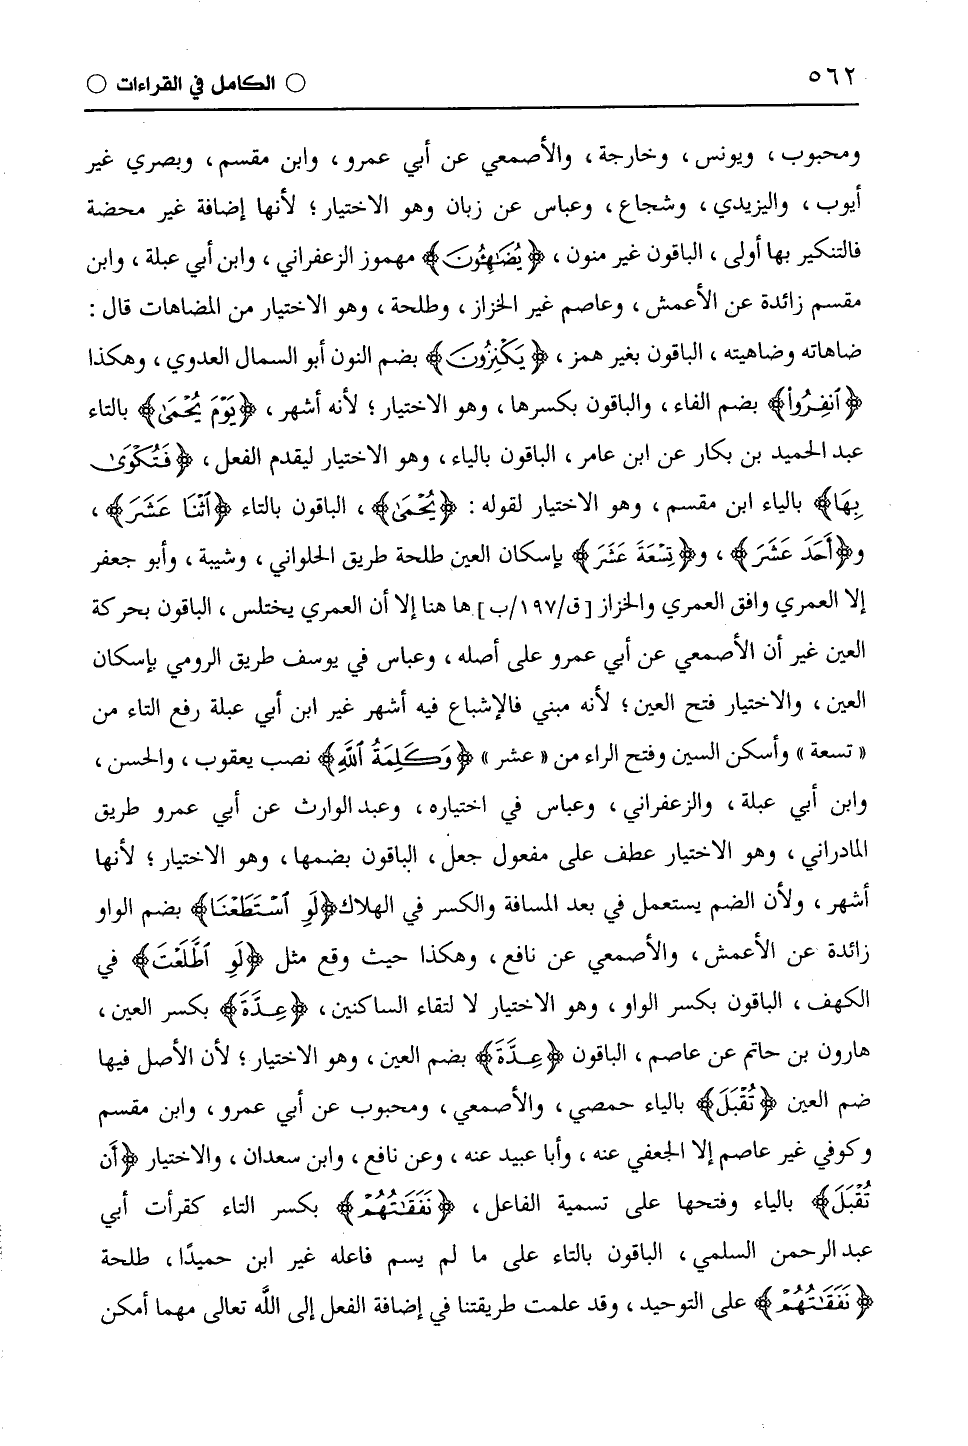 ٥٦٢
○ الكامل في القراءات ○
ومحبوب ، ويونس ، وخارجة ، والأصمعي عن أبي عمرو ، وابن مقسم ، وبصري غير
أيوب ، واليزيدي ، وشجاع ، وعباس عن زبان وهو الاختيار ؛ لأنها إضافة غير محضة
فالتنكير بها أولى ، الباقون غير منون ، ﴿يُضَٰهِـُٔونَ﴾ مهموز الزعفراني ، وابن أبي عبلة ، وابن
مقسم زائدة عن الأعمش ، وعاصم غير الخزاز ، وطلحة ، وهو الاختيار من المضاهات قال :
ضاهاته وضاهيته ، الباقون بغير همز ، ﴿يَكْنِزُونَ﴾ بضم النون أبو السمال العدوي ، وهكذا
﴿ٱنفِرُوا۟﴾ بضم الفاء ، والباقون بكسرها ، وهو الاختيار ؛ لأنه أشهر ، ﴿يَوْمَ يُحْمَىٰ﴾ بالتاء
عبد الحميد بن بكار عن ابن عامر ، الباقون بالياء ، وهو الاختيار ليقدم الفعل ، ﴿فَتُكْوَىٰ
بِهَا﴾ بالياء ابن مقسم ، وهو الاختيار لقوله : ﴿يُحْمَىٰ﴾ ، الباقون بالتاء ﴿ٱثْنَا عَشَرَ﴾ ،
و﴿أَحَدَ عَشَرَ﴾ ، و﴿تِسْعَةَ عَشَرَ﴾ بإسكان العين طلحة طريق الحلواني ، وشيبة ، وأبو جعفر
إلا العمري وافق العمري والخزاز [ق/١٩٧/ب] ها هنا إلا أن العمري يختلس ، الباقون بحركة
العين غير أن الأصمعي عن أبي عمرو على أصله ، وعباس في يوسف طريق الرومي بإسكان
العين ، والاختيار فتح العين ؛ لأنه مبني فالإشباع فيه أشهر غير ابن أبي عبلة رفع التاء من
« تسعة » وأسكن السين وفتح الراء من « عشر » ﴿وَكَلِمَةُ ٱللَّهِ﴾ نصب يعقوب ، والحسن ،
وابن أبي عبلة ، والزعفراني ، وعباس في اختياره ، وعبد الوارث عن أبي عمرو طريق
المادراني ، وهو الاختيار عطف على مفعول جعل ، الباقون بضمها ، وهو الاختيار ؛ لأنها
أشهر ، ولأن الضم يستعمل في بعد المسافة والكسر في الهلاك﴿لَوِ ٱسْتَطَعْنَا﴾ بضم الواو
زائدة عن الأعمش ، والأصمعي عن نافع ، وهكذا حيث وقع مثل ﴿لَوِ ٱطَّلَعْتَ﴾ في
الكهف ، الباقون بكسر الواو ، وهو الاختيار لا لتقاء الساكنين ، ﴿عِدَّةَ﴾ بكسر العين ،
هارون بن حاتم عن عاصم ، الباقون ﴿عِدَّةَ﴾ بضم العين ، وهو الاختيار ؛ لأن الأصل فيها
ضم العين ﴿تُقْبَلَ﴾ بالياء حمصي ، والأصمعي ، ومحبوب عن أبي عمرو ، وابن مقسم
وكوفي غير عاصم إلا الجعفي عنه ، وأبا عبيد عنه ، وعن نافع ، وابن سعدان ، والاختيار ﴿أَن
تُقْبَلَ﴾ بالياء وفتحها على تسمية الفاعل ، ﴿نَفَقَٰتُهُمْ﴾ بكسر التاء كقرأت أبي
عبد الرحمن السلمي ، الباقون بالتاء على ما لم يسم فاعله غير ابن حميدًا ، طلحة
﴿نَفَقَٰتُهُمْ﴾ على التوحيد ، وقد علمت طريقتنا في إضافة الفعل إلى الله تعالى مهما أمكن